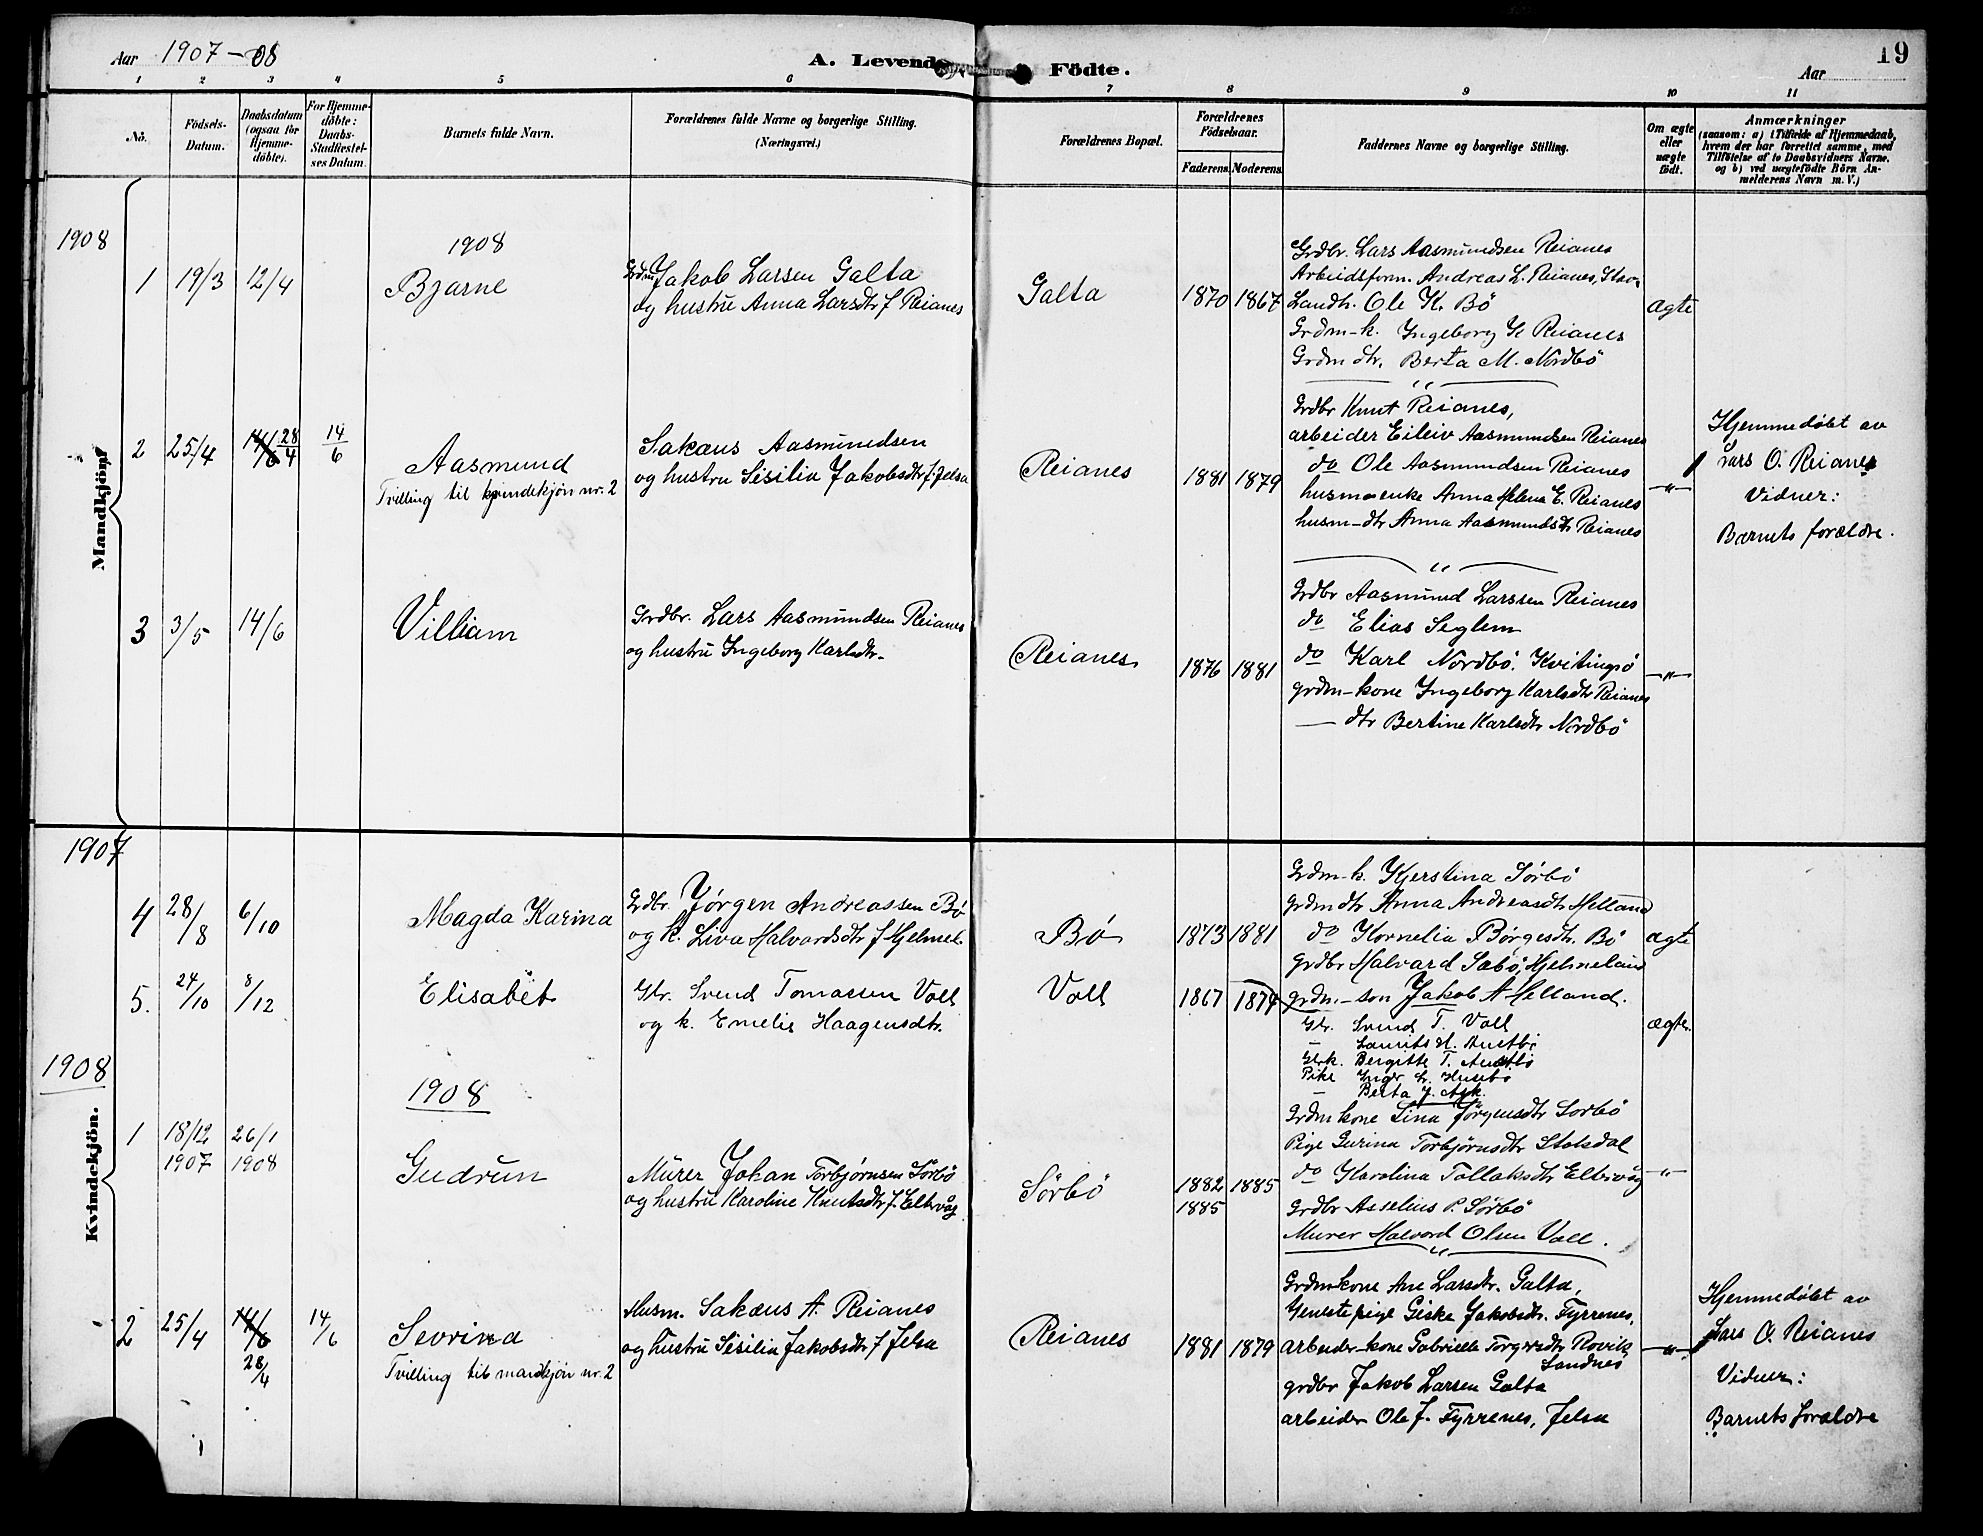 Aar 1907-08
A. Levende Födte.
Aar
19
1 2 3 4 5 6 7 8 9 10 11
No.
Födsels-Datum.
Daabsdatum (ogsaa for Hjemme-döbte).
For Hjemme-döbte: Daabs-Stadfæstel-ses Datum.
Barnets fulde Navn.
Forældrenes fulde Navne og borgerlige Stilling.
(Næringsvei.)
Forældrenes Bopæl.
Forældrenes Födselsaar.
Faderens. Moderens.
Faddernes Navne og borgerlige Stilling.
Om ægte eller uægte födt.
Anmærkninger
(saasom: a) i Tilfælde af Hjemmedaab,
hvem der har forrettet samme, med
Tilföielse af to Daabsvidners Navne.
og b) ved uægtefödte Börn An-
melderens Navn m. V.)
Mandkjön.
1908
1908
1 19/3 12/4 Bjarne
Grdm Jakob Larsen Galta
og hustru Anna Larsdtr f Reianes
Galta 1870 1867
Grdbr. Lars Aasmundsen Reianes
Arbeidsform. Andreas L. Reianes, Stav.
Landh. Ole K. Bö
Grdm-k. Ingeborg K Reianes
Grdm dtr. Berta M. Nordbö
ægte
2 25/4 14/6 28/4 14/6
Aasmund
Tvilling til kvindekjön nr. 2
Sakæus Aasmundsen
og hustru Sisilia Jakobsdtr f. Jelsa
Reianes 1881 1879
Grdbr Knut Reianes,
arbeider Eileiv Aasmundsen Reianes
do Ole Aasmundsen Reianes
husmoenke Anna Helena E. Reianes
husm-dtr Anna Aasmundsdtr Reianes
—"—
Hjemmedöbt av
Lars O. Reianes
Vidner:
Barnets forældre.
3 3/5 14/6 Villiam
Grdbr. Lars Aasmundsen Reianes
og hustru Ingeborg Karlsdtr.
Reianes 1876 1881
Grdbr Aasmund Larssen Reianes
do Elias Seglem
do Karl Nordbö. Kvitingsö
grdm-kone Ingeborg Karlsdtr Reianes
— dtr Bertine Karlsdtr Nordbö
—"—
1907
Kvindekjön.
4 28/8 6/10 Magda Karina
Grdbr. Jørgen Andreassen Bö
og k. Liva Halvardsdtr f Hjelmel.
Bö 1873 1881
Grdm-k. Kjerstina Sörbö
grdmdtr Anna Andreasdtr Helland
do Kornelia Börgesdtr. Bö
grdbr Halvard Sæbö, Hjelmeland
grdm.-son Jakob A Helland.
ægte
5. 24/10 8/12 Elisabet
Gbr. Svend Tomassen Voll
og k. Emelie Haagensdtr.
Voll 1867 1874
Gbr. Svend T. Voll
- Laurits H. Austbö
Gbrk. Bergitte T. Austbö
Pike Inger L. Husebö
- Berta J. Ask.
ægte.
1908
1908
1 18/12 1907 26/1 1908 Gudrun
Murer Johan Torbjørnsen Sörbö
og hustru Karoline Knutsdtr f. Eltervåg
Sörbö 1882 1885
1885
Grdm kone Lina Jörgensdtr Sorbö
Pige Gurina Torbjörnsdtr Stoksdal
do Karolina Tollaksdtr Eltervåg
Grdbr Asselius P. Sörbö
Murer Halvard Olsen Voll.
—"—
2 25/4 14/6 28/4 14/6
Sevrina
Tvilling til mandkjön nr. 2
Husm. Sakæus A. Reianes
og hustru Sisilia Jakobsdtr f Jelsa
Reianes 1881 1879
Grdmkone Ane Larsdtr. Galta,
Tjenestepige Giske Jakobsdtr. Fyrrenes,
arbeider-kone Gabrielle Torgersdtr Rovik, Sandnes
grdbr Jakob Larsen Galta
arbeider Ole J. Fyrrenes, Jelsa
—"—
Hjemmedöbt av
Lars O. Reianes
Vidner:
Barnets forældre